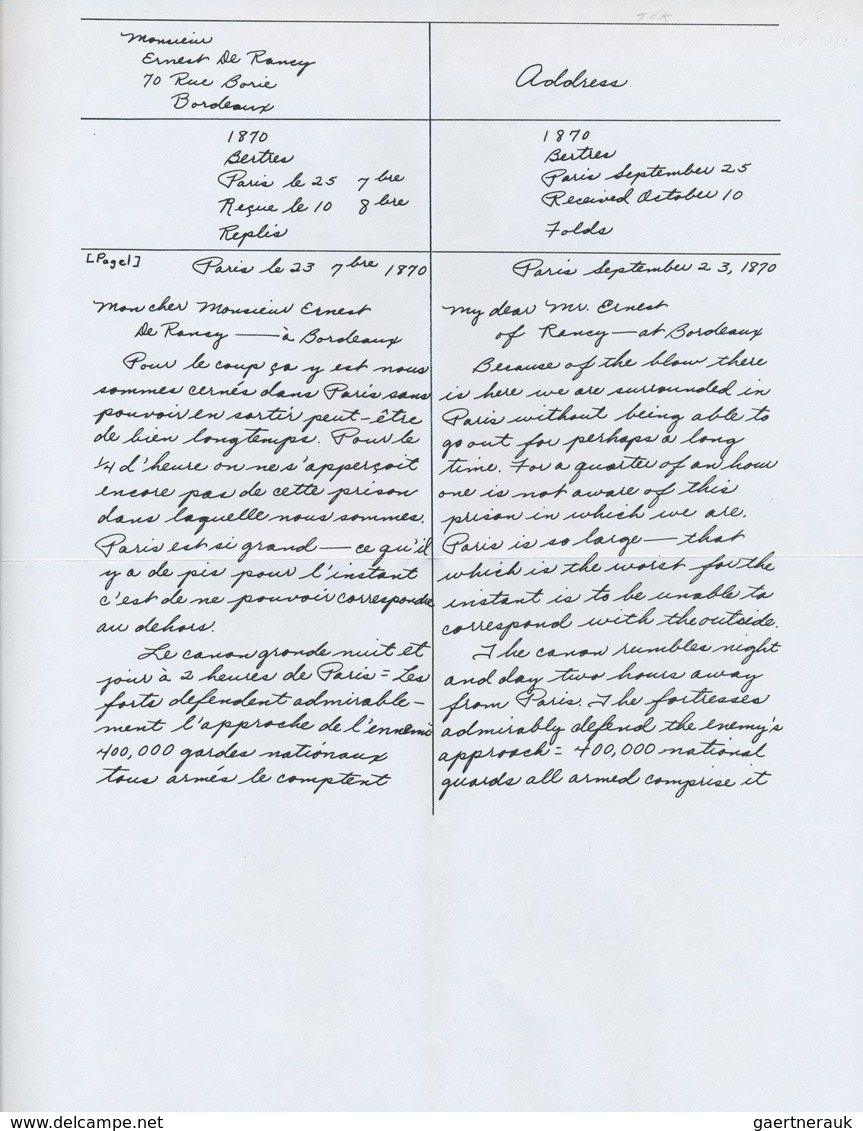 Monsieur
Ernest De Rancy
70 Rue Borie
Bordeaux
Address
1870
Bertres
Paris le 25 7 bre
Reçue le 10 8 bre
Replis
1870
Bertres
Paris September 25
Received October 10
Folds
[Page 1]
Paris le 23 7bre 1870
Mon cher Monsieur Ernest
De Rancy — à Bordeaux
Pour le coup ça y est nous
sommes cernés dans Paris sans
pouvoir en sortir peut-être
de bien longtemps. Pour le
1/4 d'heure on ne s'apperçoit
encore pas de cette prison
dans laquelle nous sommes.
Paris est si grand — ce qu'il
y a de pis pour l'instant
c'est de ne pouvoir correspondre
au dehors.
Le canon gronde nuit et
jour à 2 heures de Paris = Les
forts défendent admirable-
ment l'approche de l'ennemi
400,000 gardes nationaux
tous armés le comptent
Paris September 23, 1870
My dear Mr. Ernest
of Rancy — at Bordeaux
Because of the blow there
is here we are surrounded in
Paris without being able to
go out for perhaps a long
time. For a quarter of an hour
one is not aware of this
prison in which we are.
Paris is so large — that
which is the worst for the
instant is to be unable to
correspond with the outside.
The canon rumbles night
and day two hours away
from Paris. The fortresses
admirably defend the enemy's
approach = 400,000 national
guards all armed comprise it
www.delcampe.net
gaertnerauk